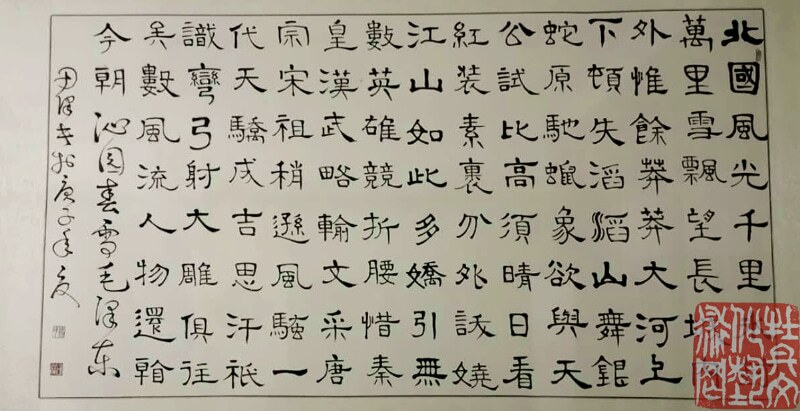 北國風光千里
萬里雪飄望長城
外惟餘莽莽大河上
下頓失滔滔山舞銀
蛇原馳蠟象欲與天
公試比高須晴日看
紅裝素裹分外訞嬈
江山如此多嬌引無
數英雄競折腰惜秦
皇漢武略輸文采唐
宗宋祖稍遜風騷一
代天驕成吉思汗祇
識彎弓射大雕俱往
矣數風流人物還看
今朝 沁园春雪毛澤东
书於庚子年夏